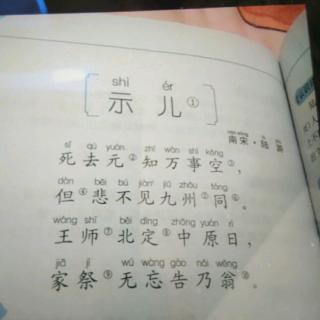 shì ér
示儿①
nán sòng
南宋·陆游
sǐ qù yuán zhī wàn shì kōng
死去元②知万事空③,
dàn bēi bú jiàn jiǔ zhōu tóng
但④悲不见九州⑤同⑥。
wáng shī běi dìng zhōng yuán rì
王师⑦北定⑧中原日,
jiā jì wú wàng gào nǎi wēng
家祭⑨无忘告乃翁⑩。